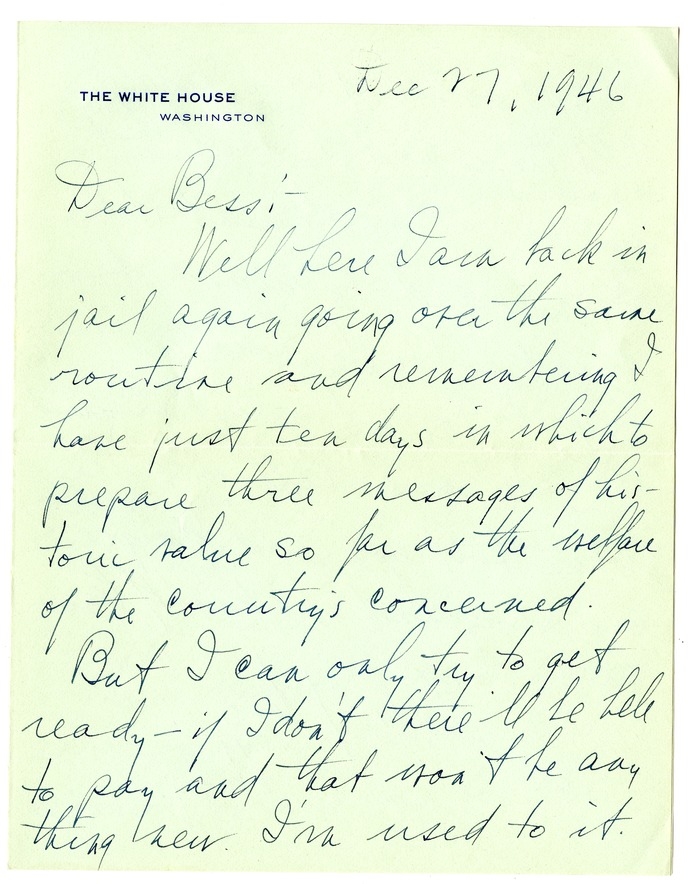 Dec 27, 1946
THE WHITE HOUSE
WASHINGTON
Dear Bess:-
Well here I am back in
jail again going over the same
routine and remembering I
have just ten days in which to
prepare three messages of his-
toric value so far as the welfare
of the country's concerned.
But I can only try to get
ready - if I don't there'll be hell
to pay and that won't be any
thing new. I'm used to it.